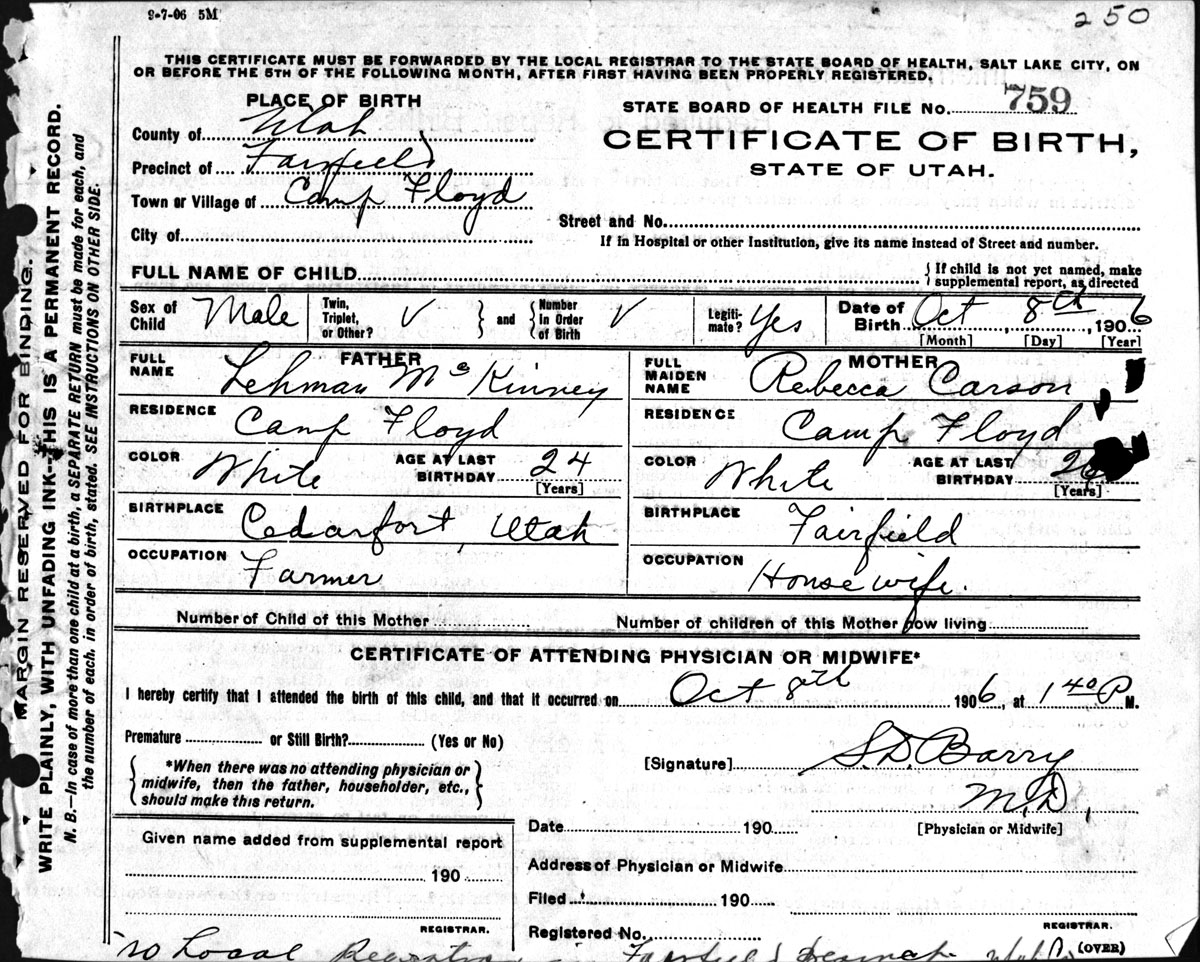 9-7-06 5M
250
THIS CERTIFICATE MUST BE FORWARDED BY THE LOCAL REGISTRAR TO THE STATE BOARD OF HEALTH, SALT LAKE CITY, ON
OR BEFORE THE 5TH OF THE FOLLOWING MONTH, AFTER FIRST HAVING BEEN PROPERLY REGISTERED.
MARGIN RESERVED FOR BINDING.
WRITE PLAINLY, WITH UNFADING INK—THIS IS A PERMANENT RECORD.
N. B.—In case of more than one child at a birth, a SEPARATE RETURN must be made for each, and
the number of each. in order of birth, stated. SEE INSTRUCTIONS ON OTHER SIDE.
PLACE OF BIRTH
County of Utah
Precinct of Fairfield
Town or Village of Camp Floyd
City of
STATE BOARD OF HEALTH FILE No. 759
CERTIFICATE OF BIRTH,
STATE OF UTAH.
Street and No.
If in Hospital or other Institution, give its name instead of Street and number.
FULL NAME OF CHILD
{ If child is not yet named, make
supplemental report, as directed
Sex of Child Male
Twin, Triplet, or Other? V
} and { Number in Order of Birth V
Legiti-mate? Yes
Date of Birth Oct 8th, 1906
[Month] [Day] [Year]
FATHER
FULL NAME Lehman McKinney
RESIDENCE Camp Floyd
COLOR White AGE AT LAST BIRTHDAY 24
[Years]
BIRTHPLACE Cedarfort, Utah
OCCUPATION Farmer
MOTHER
FULL MAIDEN NAME Rebecca Carson
RESIDENCE Camp Floyd
COLOR White AGE AT LAST BIRTHDAY 26
[Years]
BIRTHPLACE Fairfield
OCCUPATION House wife.
Number of Child of this Mother
Number of children of this Mother now living
CERTIFICATE OF ATTENDING PHYSICIAN OR MIDWIFE*
I hereby certify that I attended the birth of this child, and that it occurred on Oct 8th 1906, at 1 40 P M.
Premature or Still Birth? (Yes or No)
{ *When there was no attending physician or
midwife, then the father, householder, etc.,
should make this return. }
[Signature] S.D. Barry
M.D.
[Physician or Midwife]
Date 190
Given name added from supplemental report
190
REGISTRAR.
Address of Physician or Midwife
Filed 190
REGISTRAR.
Registered No.
no Local in Fairfield Utah
(OVER)